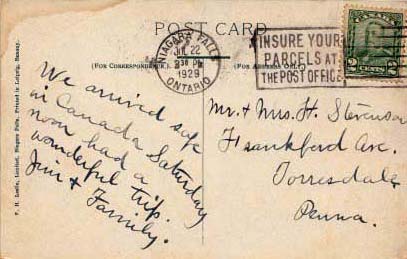 POST CARD
(FOR CORRESPONDENCE.)
(FOR ADDRESS ONLY.)
NIAGARA FALLS
JUL 22
1929
ONTARIO
INSURE YOUR
PARCELS AT
THE POST OFFICE
2 CENTS 2
We arrived safe
in Canada Saturday
noon had a
wonderful trip.
Jim & Family.
Mr. & Mrs. H. Stevenson
Frankford Ave.
Torresdale
Penna.
F. H. Leslie, Limited, Niagara Falls. Printed in Leipzig, Saxony.